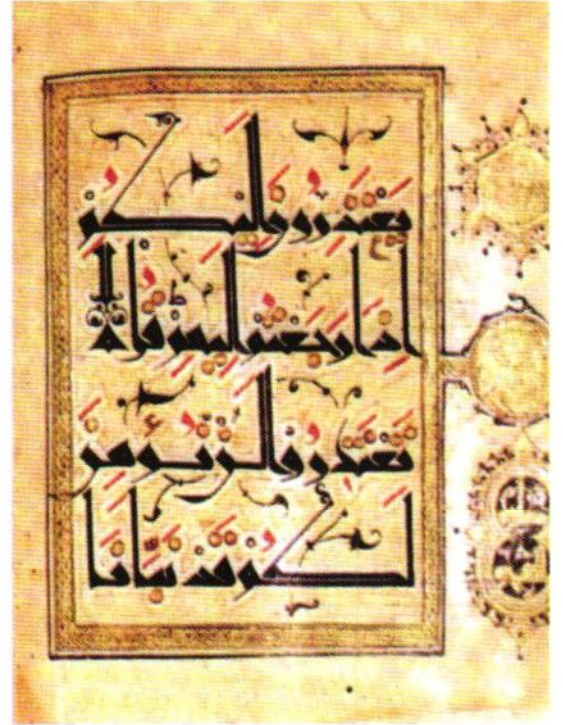 يعتذرون اليكم
اذا رجعتم اليهم قل لا
تعتذروا لن نؤمن
لكم قد نبأنا